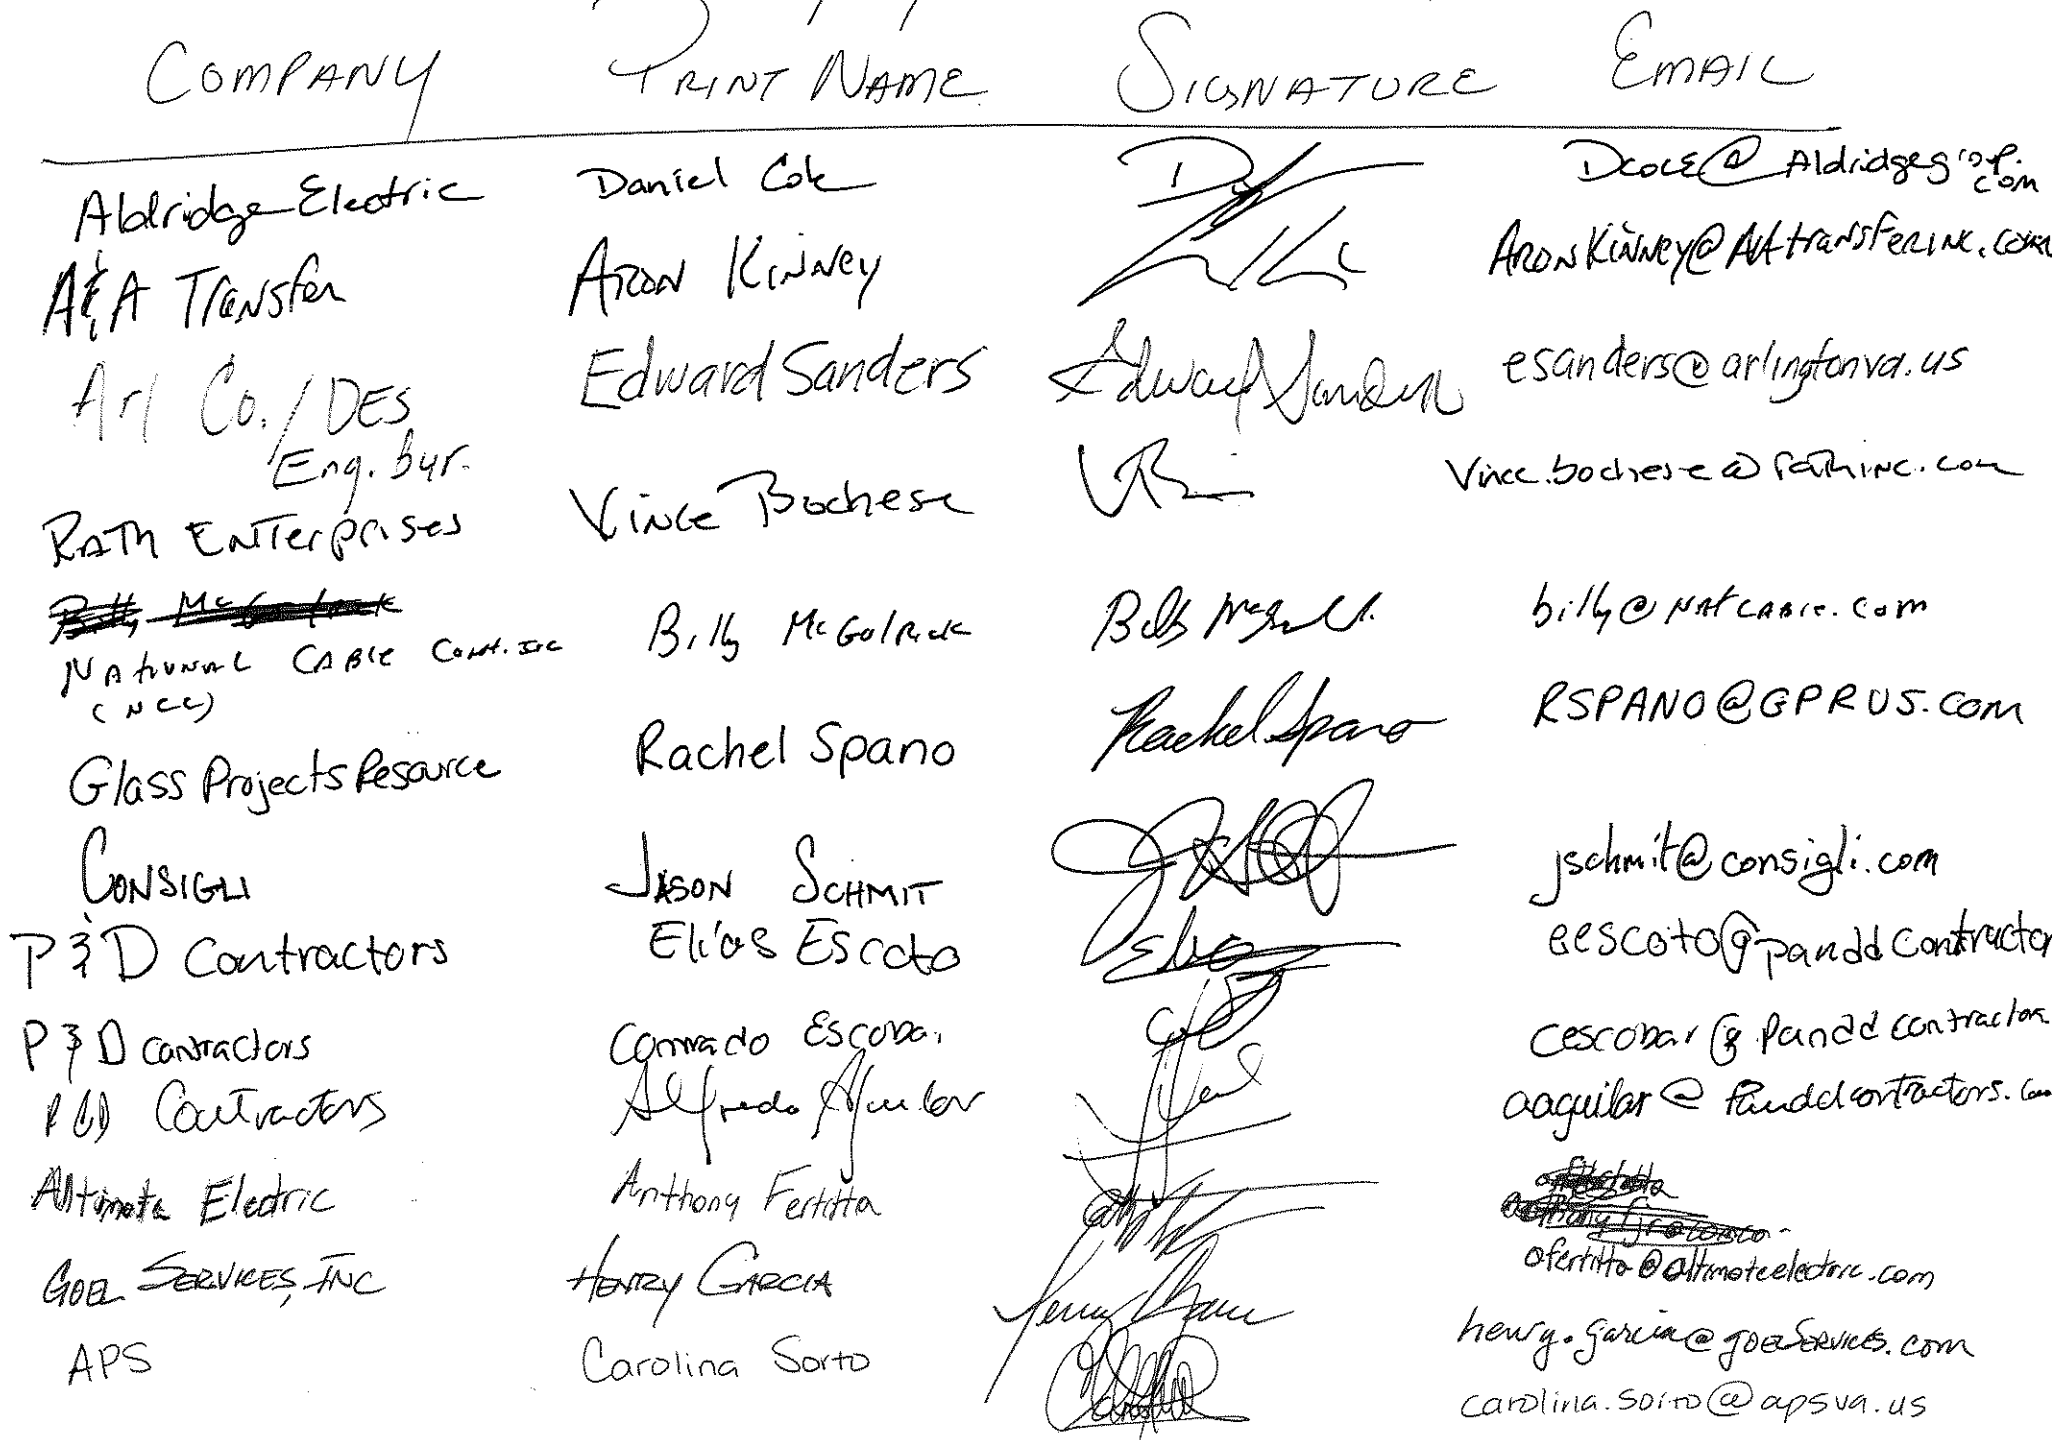 COMPANY PRINT NAME SIGNATURE EMAIL
Aldridge Electric Daniel Cole Dcole@Aldridgegroup.com
A&A Transfer Aron Kinney AronKinney@AAtransferinc.com
Arl Co./DES Edward Sanders Edward Sanders esanders@arlingtonva.us
Eng. bur.
Rath Enterprises Vince Bochese Vince.bochese@rathinc.com
Billy McGolrick
National Cable Cont. Inc Billy McGolrick billy@natcable.com
(NCC)
Glass Projects Resource Rachel Spano Rachel Spano RSPANO@GPRUS.COM
Consigli Jason Schmit jschmit@consigli.com
P & D Contractors Elias Escoto Elias eescoto@panddcontractor
P & D contractors Conrado Escobar cescobar@panddcontractor
P&D Contractors Alfredo Aguilar aaguilar@panddcontractors.com
Altimate Electric Anthony Fertitta
afertitta@altimateelectric.com
Goel Services, Inc Henry Garcia henry.garcia@goelservices.com
APS Carolina Sorto carolina.sorto@apsva.us